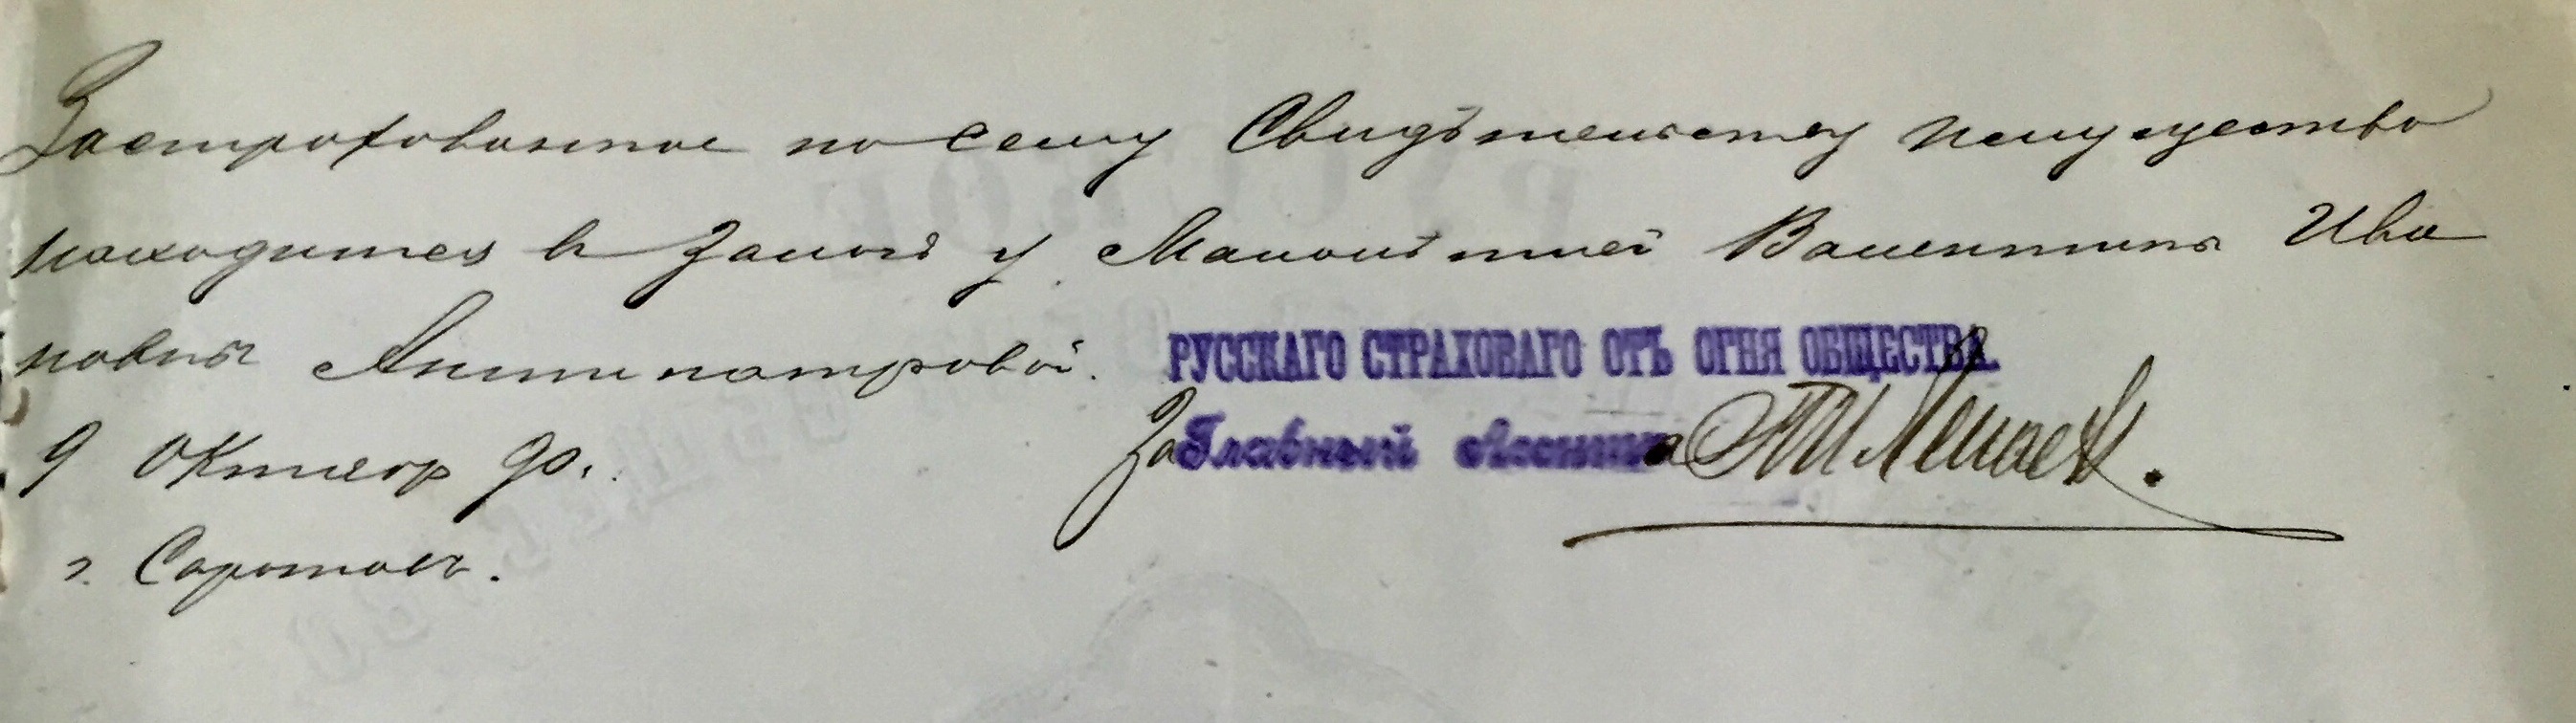 Застрахованное по сему Свидѣтельству имущество
находится въ залогѣ у Малолѣтней Валентины Ива
новны Антипатровой.
РУССКАГО СТРАХОВАГО ОТЪ ОГНЯ ОБЩЕСТВА.
За Главный Агента
9 Октябр 90.
г. Саратовъ.